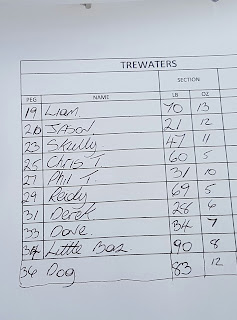 TREWATERS
SECTION
PEG NAME LB OZ
19 Liam 70 13
20 JASON 21 12
23 Skully 47 11
25 CHRIS T 60 5
27 Phil T 31 10
29 Ready 69 5
31 Derek 28 6
33 Dave 34 7
34 Little Baz 90 8
36 Dog 83 12